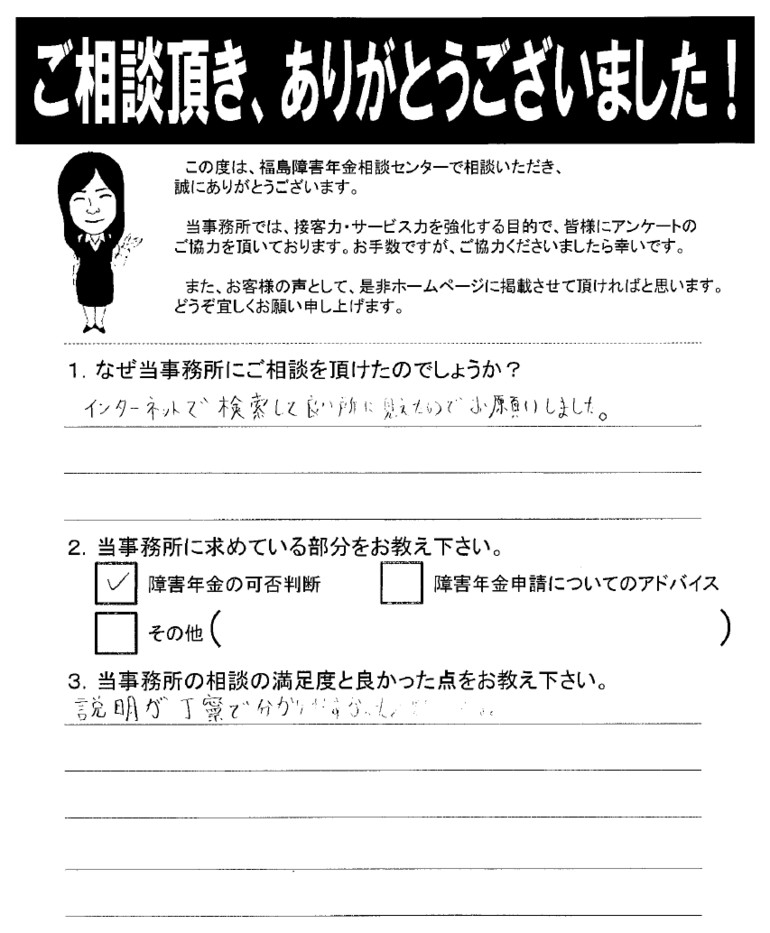 ご相談頂き、ありがとうございました！
この度は、福島障害年金相談センターで相談いただき、
誠にありがとうございます。
当事務所では、接客力・サービス力を強化する目的で、皆様にアンケートの
ご協力を頂いております。お手数ですが、ご協力くださいましたら幸いです。
また、お客様の声として、是非ホームページに掲載させて頂ければと思います。
どうぞ宜しくお願い申し上げます。
1．なぜ当事務所にご相談を頂けたのでしょうか？
インターネットで検索して良い所に見えたのでお願いしました。
2．当事務所に求めている部分をお教え下さい。
✓ 障害年金の可否判断 障害年金申請についてのアドバイス
その他（ ）
3．当事務所の相談の満足度と良かった点をお教え下さい。
説明が丁寧で分かりやすかった